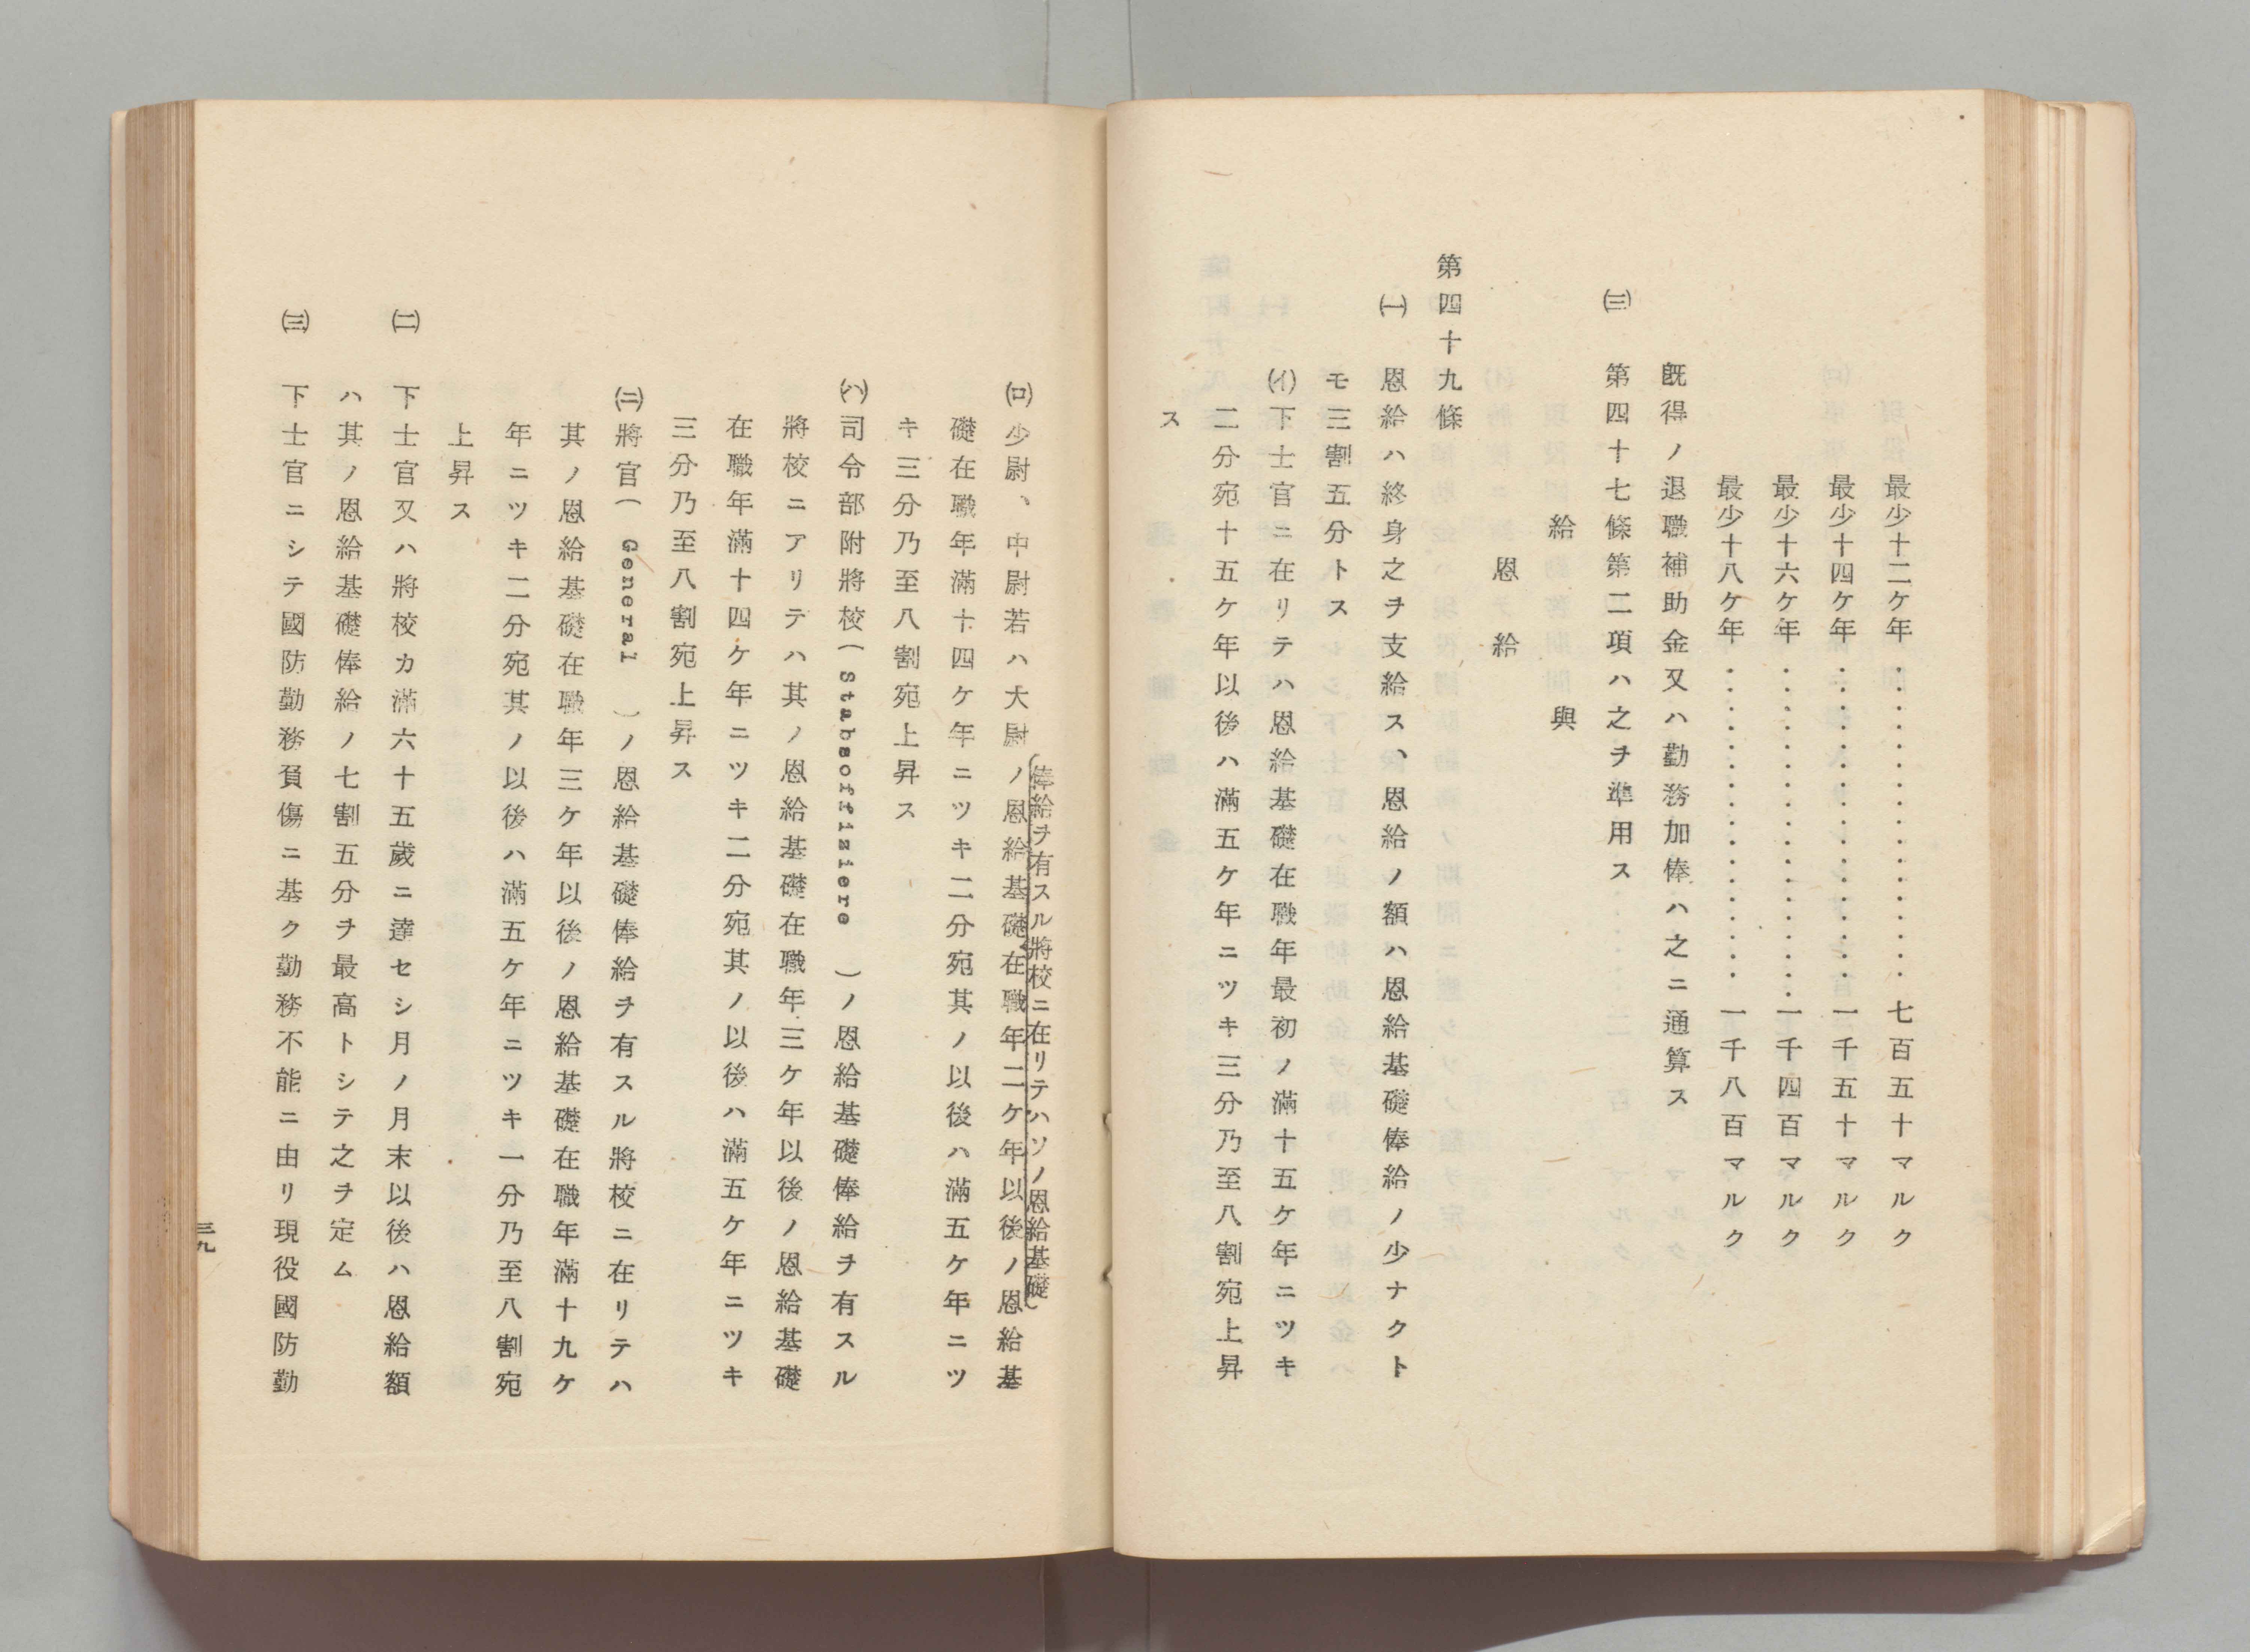 最少十二ケ年．．．．．．．．．．．．．．．．．七百五十マルク
最少十四ケ年．．．．．．．．．．．．．．．．．一千五十マルク
最少十六ケ年．．．．．．．．．．．．．．．．．一千四百マルク
最少十八ケ年．．．．．．．．．．．．．．．．．一千八百マルク
既得ノ退職補助金又ハ勤務加俸ハ之ニ通算ス
㈢　第四十七條第二項ハ之ヲ準用ス
給與
恩給
第四十九條
㈠　恩給ハ終身之ヲ支給ス、恩給ノ額ハ恩給基礎俸給ノ少ナクト
モ三割五分トス
(イ)下士官ニ在リテハ恩給基礎在職年最初ノ滿十五ケ年ニツキ
二分宛十五ケ年以後ハ滿五ケ年ニツキ三分乃至八割宛上昇
ス
(ロ)少尉、中尉若ハ大尉ノ恩給基礎在職年二ケ年以後ノ恩給基
(俸給ヲ有スル將校ニ在リテハソノ恩給基礎)
礎在職年滿十四ケ年ニツキ二分宛其ノ以後ハ滿五ケ年ニツ
キ三分乃至八割宛上昇ス
(ハ)司令部附將校(Stabsoffiziere)ノ恩給基礎俸給ヲ有スル
將校ニアリテハ其ノ恩給基礎在職年三ケ年以後ノ恩給基礎
在職年滿十四ケ年ニツキ二分宛其ノ以後ハ滿五ケ年ニツキ
三分乃至八割宛上昇ス
(ニ)將官(General)ノ恩給基礎俸給ヲ有スル將校ニ在リテハ
其ノ恩給基礎在職年三ケ年以後ノ恩給基礎在職年滿十九ケ
年ニツキ二分宛其ノ以後ハ滿五ケ年ニツキ一分乃至八割宛
上昇ス
㈡　下士官又ハ將校カ滿六十五歲ニ達セシ月ノ月末以後ハ恩給額
ハ其ノ恩給基礎俸給ノ七割五分ヲ最高トシテ之ヲ定ム
㈢　下士官ニシテ國防勤務負傷ニ基ク勤務不能ニ由リ現役國防勤
三九